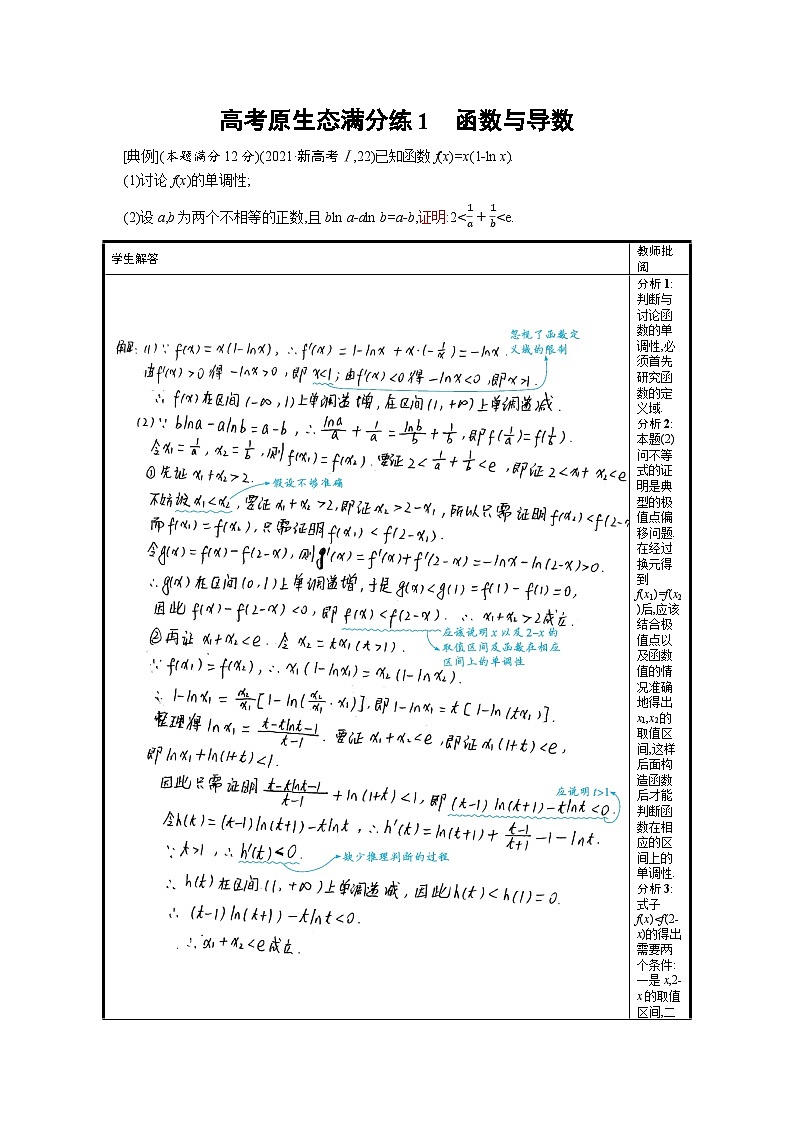 高考原生态满分练1 函数与导数
[典例](本题满分12分)(2021·新高考Ⅰ,22)已知函数f(x)=x(1-ln x).
(1)讨论f(x)的单调性;
(2)设a,b为两个不相等的正数,且bln a-aln b=a-b,证明:2<1/a+1/b<e.
学生解答
忽视了函数定
义域的限制
解:(1)∵f(x)=x(1-lnx),∴f'(x)=1-lnx+x·(-1/x)=-lnx.
由f'(x)>0得-lnx>0,即x<1;由f'(x)<0得-lnx<0,即x>1.
∴f(x)在区间(-∞,1)上单调递增,在区间(1,+∞)上单调递减.
(2)∵blna-alnb=a-b,∴lna/a+1/a=lnb/b+1/b,即f(1/a)=f(1/b).
令x₁=1/a,x₂=1/b,则f(x₁)=f(x₂).要证2<1/a+1/b<e,即证2<x₁+x₂<e
①先证x₁+x₂>2.
假设不够准确
不妨设x₁<x₂,要证x₁+x₂>2,即证x₂>2-x₁,所以只需证明f(x₂)<f(2-x
而f(x₁)=f(x₂),只需证明f(x₁)<f(2-x₁).
令g(x)=f(x)-f(2-x),则g'(x)=f'(x)+f'(2-x)=-lnx-ln(2-x)>0.
∴g(x)在区间(0,1)上单调递增,于是g(x)<g(1)=f(1)-f(1)=0,
因此f(x)-f(2-x)<0,即f(x)<f(2-x).∴x₁+x₂>2成立.
应该说明x以及2-x的
取值区间及函数在相应
区间上的单调性
②再证x₁+x₂<e.令x₂=tx₁(t>1).
∵f(x₁)=f(x₂),∴x₁(1-lnx₁)=x₂(1-lnx₂).
∴1-lnx₁=x₂/x₁[1-ln(x₂/x₁·x₁)],即1-lnx₁=t[1-ln(tx₁)].
整理得lnx₁=(t-tlnt-1)/(t-1).要证x₁+x₂<e,即证x₁(1+t)<e,
即lnx₁+ln(1+t)<1.
因此只需证明(t-tlnt-1)/(t-1)+ln(1+t)<1,即(t-1)ln(t+1)-tlnt<0.
应说明t>1
令h(t)=(t-1)ln(t+1)-tlnt,∴h'(t)=ln(t+1)+(t-1)/(t+1)-1-lnt.
∵t>1,∴h'(t)<0.
缺少推理判断的过程
∴h(t)在区间(1,+∞)上单调递减,因此h(t)<h(1)=0.
∴(t-1)ln(t+1)-tlnt<0.
∴x₁+x₂<e成立.
教师批
阅
分析1:
判断与
讨论函
数的单
调性,必
须首先
研究函
数的定
义域.
分析2:
本题(2)
问不等
式的证
明是典
型的极
值点偏
移问题.
在经过
换元得
到
f(x₁)=f(x₂
)后,应该
结合极
值点以
及函数
值的情
况准确
地得出
x₁,x₂的
取值区
间,这样
后面构
造函数
后才能
判断函
数在相
应的区
间上的
单调性.
分析3:
式子
f(x)<f(2-
x)的得出
需要两
个条件:
一是x,2-
x的取值
区间,二